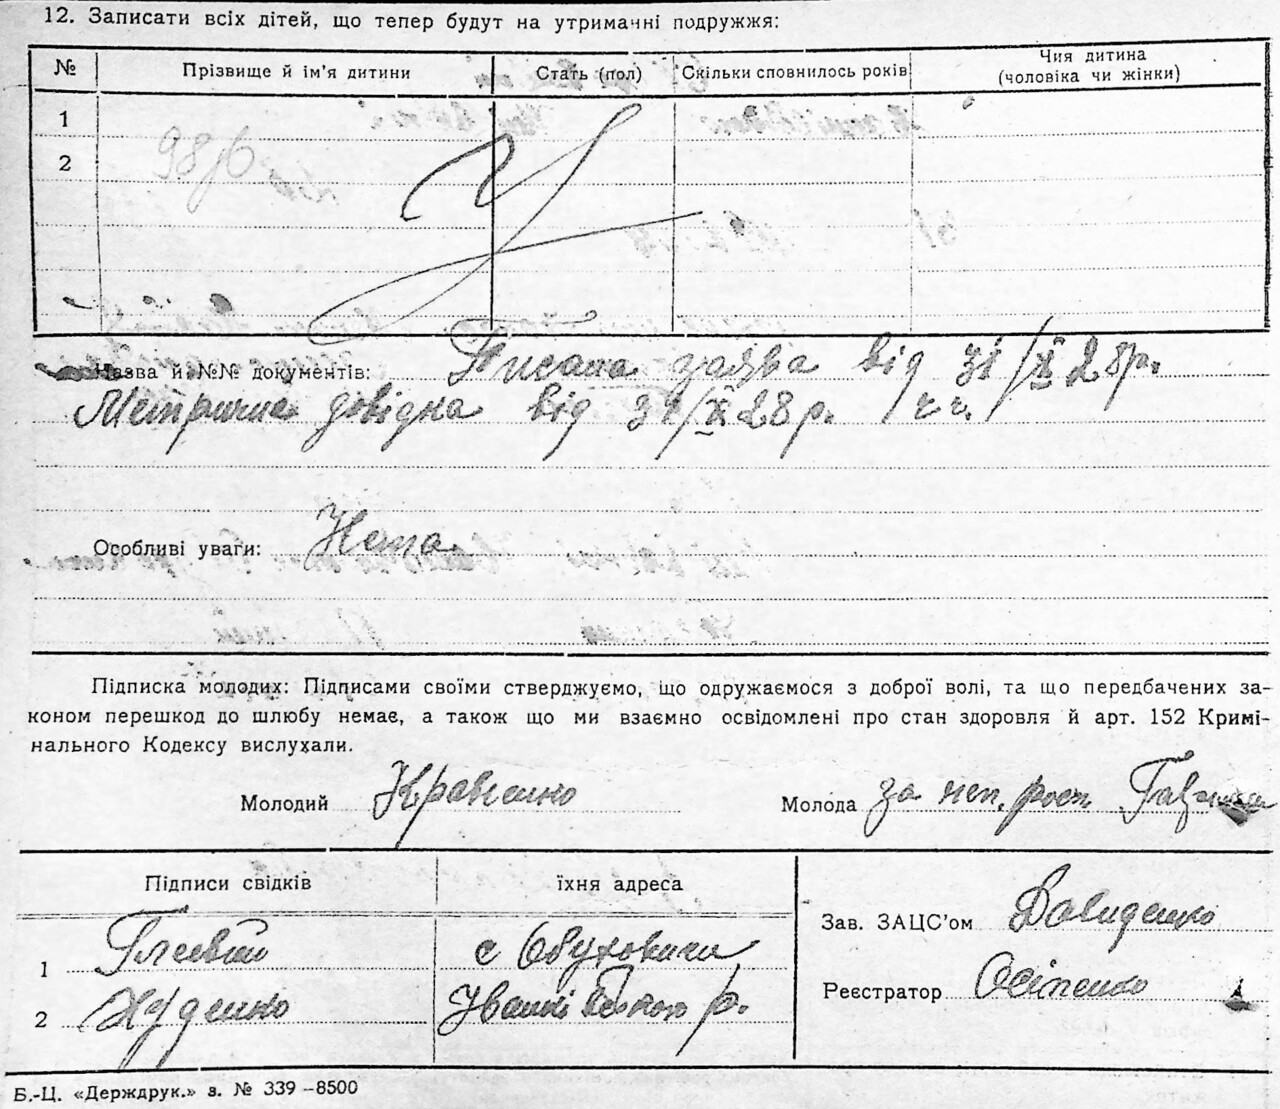 12. Записати всіх дітей, що тепер будут на утриманні подружжя:
№ Прізвище й ім’я дитини Стать (пол) Скільки сповнилось років Чия дитина (чоловіка чи жінки)
1
2
Назва й №№ документів: Писана заява від 31/X 28р.
Метрична довідка від 31/X 28р.
Особливі уваги: Нема
Підписка молодих: Підписами своїми стверджуємо, що одружаємося з доброї волі, та що передбачених за-
коном перешкод до шлюбу немає, а також що ми взаємно освідомлені про стан здоровля й арт. 152 Кримі-
нального Кодексу вислухали.
Молодий Кравченко Молода за неп.
Підписи свідків їхня адреса
Зав. ЗАЦС’ом Давиденко
1 с Обуховичи
Реєстратор Осіпенко
2 Худенко Іванківського р.
Б.-Ц. «Держдрук.» з. № 339–8500